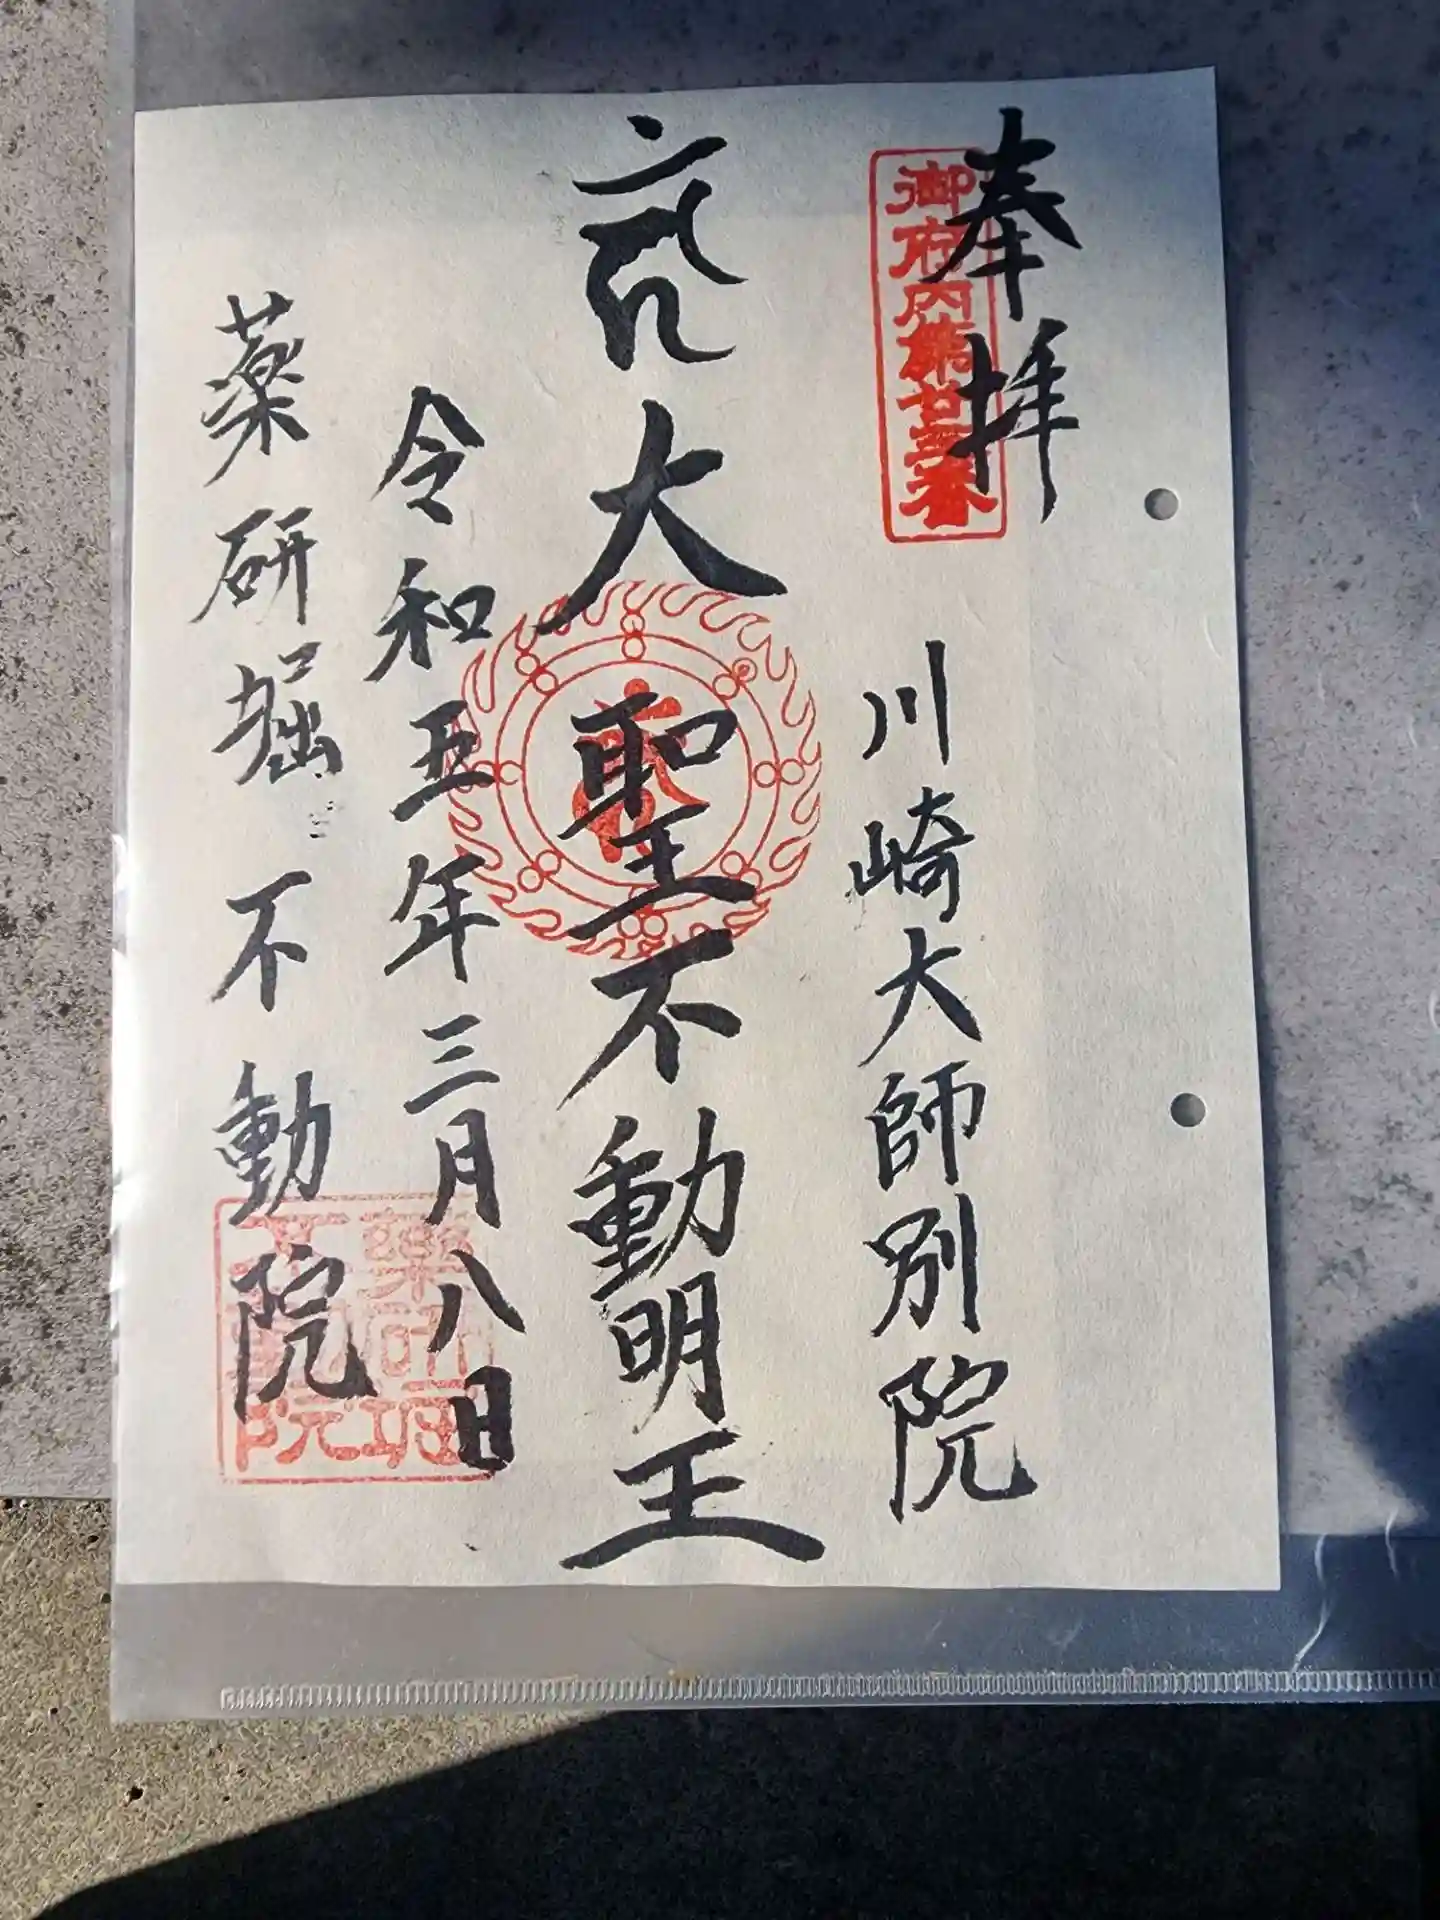 奉拝
御府内第廿二番
川崎大師別院
大聖不動明王
令和五年三月八日
薬研堀不動院
薬研堀
不動院